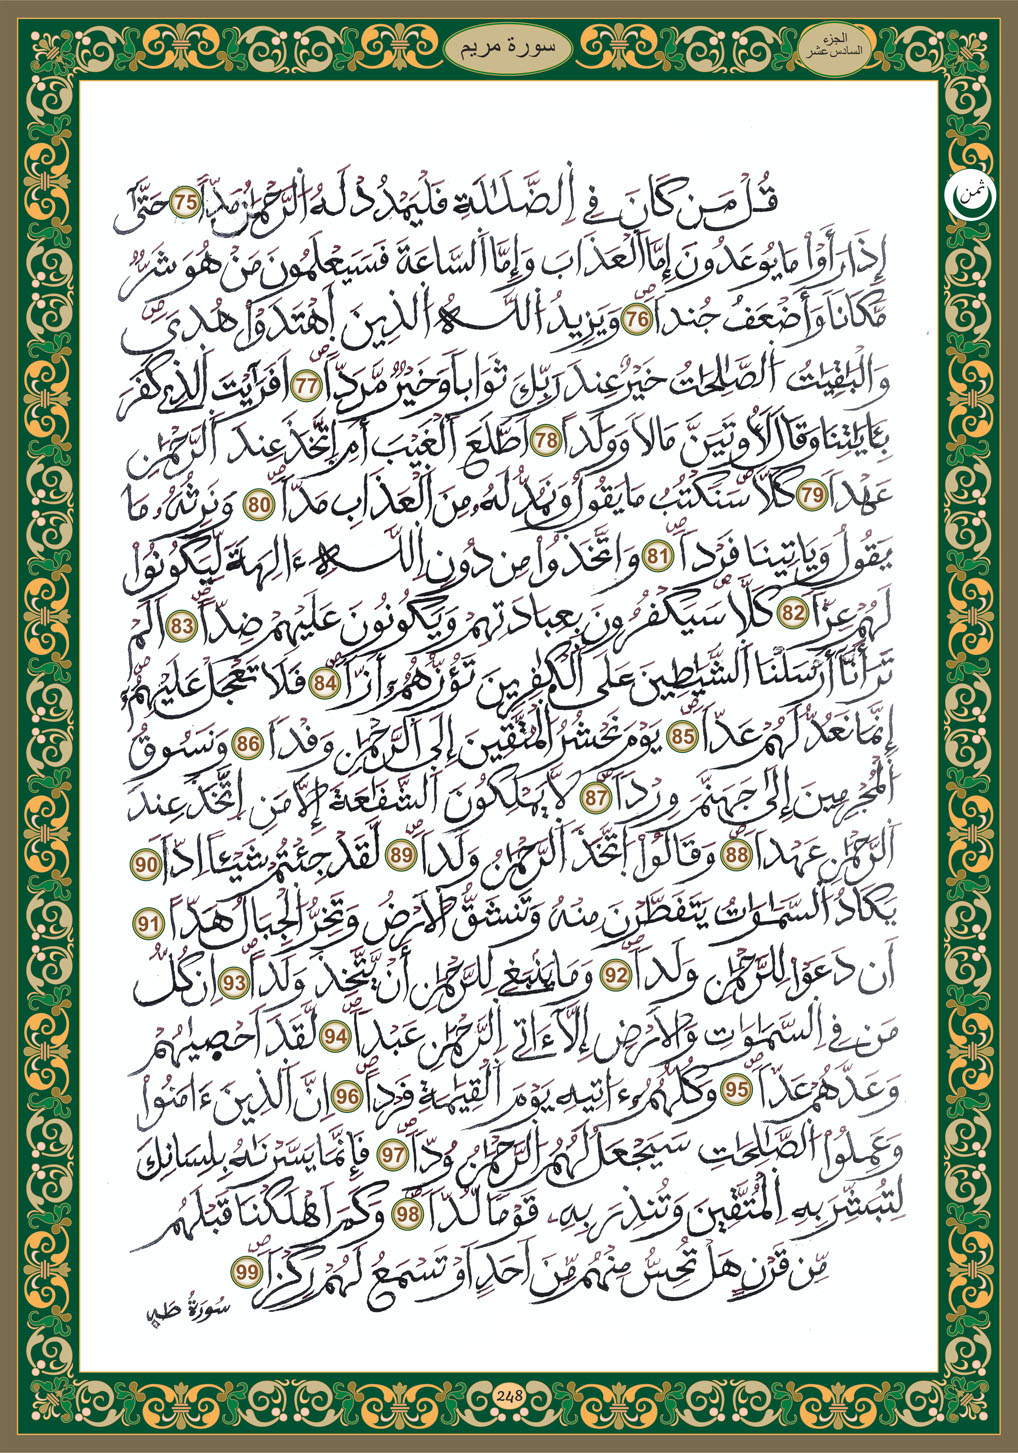 سورة مريم
الجزء
السادس عشر
ثمن
قُلْ مَن كَانَ فِي اِ۬لضَّلَٰلَةِ فَلْيَمْدُدْ لَهُ اُ۬لرَّحْمَٰنُ مَدّاًۖ 75 حَتَّىٰٓ
إِذَا رَأَوْاْ مَا يُوعَدُونَ إِمَّا اَ۬لْعَذَابَ وَإِمَّا اَ۬لسَّاعَةَ فَسَيَعْلَمُونَ مَنْ هُوَ شَرّٞ
مَّكَاناٗ وَأَضْعَفُ جُنداٗۖ 76 وَيَزِيدُ اُ۬للَّهُ اُ۬لذِينَ اَ۪هْتَدَوْاْ هُديٗۖ
وَالْبَٰقِيَٰتُ اُ۬لصَّٰلِحَٰتُ خَيْرٌ عِندَ رَبِّكَ ثَوَاباٗ وَخَيْرٞ مَّرَدّاًۖ 77 اَفَرَٰٓيْتَ اَ۬لذِے كَفَرَ
بِـَٔايَٰتِنَا وَقَالَ لَأُوتَيَنَّ مَالاٗ وَوَلَداًۖ 78 اَطَّلَعَ اَ۬لْغَيْبَ أَمِ اِ۪تَّخَذَ عِندَ اَ۬لرَّحْمَٰنِ
عَهْداٗۖ 79 كَلَّاۖ سَنَكْتُبُ مَا يَقُولُ وَنَمُدُّ لَهُۥ مِنَ اَ۬لْعَذَابِ مَدّاٗۖ 80 وَنَرِثُهُۥ مَا
يَقُولُ وَيَاتِينَا فَرْداٗۖ 81 وَاتَّخَذُواْ مِن دُونِ اِ۬للَّهِ ءَالِهَةٗ لِّيَكُونُواْ
لَهُمْ عِزّاٗۖ 82 كَلَّاۖ سَيَكْفُرُونَ بِعِبَادَتِهِمْ وَيَكُونُونَ عَلَيْهِمْ ضِدّاًۖ 83 اَلَمْ
تَرَ أَنَّآ أَرْسَلْنَا اَ۬لشَّيَٰطِينَ عَلَى اَ۬لْكٰ۪فِرِينَ تَؤُزُّهُمُۥٓ أَزّاٗۖ 84 فَلَا تَعْجَلْ عَلَيْهِمُۥٓۖ
إِنَّمَا نَعُدُّ لَهُمْ عَدّاٗۖ 85 يَوْمَ نَحْشُرُ اُ۬لْمُتَّقِينَ إِلَى اَ۬لرَّحْمَٰنِ وَفْداٗ 86 وَنَسُوقُ
اُ۬لْمُجْرِمِينَ إِلَىٰ جَهَنَّمَ وِرْداٗۖ 87 لَّا يَمْلِكُونَ اَ۬لشَّفَٰعَةَ إِلَّا مَنِ اِ۪تَّخَذَ عِندَ
اَ۬لرَّحْمَٰنِ عَهْداٗۖ 88 وَقَالُواْ اُ۪تَّخَذَ اَ۬لرَّحْمَٰنُ وَلَداٗۖ 89 لَّقَدْ جِئْتُمْ شَيْـٔاً اِدّاٗ 90
يَكَادُ اُ۬لسَّمَٰوَٰتُ يَتَفَطَّرْنَ مِنْهُ وَتَنشَقُّ اُ۬لَارْضُ وَتَخِرُّ اُ۬لْجِبَالُ هَدّاً 91
اَن دَعَوْاْ لِلرَّحْمَٰنِ وَلَداٗۖ 92 وَمَا يَنۢبَغِے لِلرَّحْمَٰنِ أَنْ يَّتَّخِذَ وَلَداًۖ 93 اِن كُلُّ
مَن فِي اِ۬لسَّمَٰوَٰتِ وَالَارْضِ إِلَّآ ءَاتِے اِ۬لرَّحْمَٰنِ عَبْداٗۖ 94 لَّقَدَ اَحْصٜيٰهُمْ
وَعَدَّهُمْ عَدّاٗۖ 95 وَكُلُّهُمُۥٓ ءَاتِيهِ يَوْمَ اَ۬لْقِيَٰمَةِ فَرْداًۖ 96 اِنَّ اَ۬لذِينَ ءَامَنُواْ
وَعَمِلُواْ اُ۬لصَّٰلِحَٰتِ سَيَجْعَلُ لَهُمُ اُ۬لرَّحْمَٰنُ وُدّاٗۖ 97 فَإِنَّمَا يَسَّرْنَٰهُ بِلِسَانِكَ
لِتُبَشِّرَ بِهِ اِ۬لْمُتَّقِينَ وَتُنذِرَ بِهِۦ قَوْماٗ لُّدّاٗۖ 98 وَكَمَ اَهْلَكْنَا قَبْلَهُم
مِّن قَرْنٍ هَلْ تُحِسُّ مِنْهُم مِّنَ اَحَدٍ اَوْ تَسْمَعُ لَهُمْ رِكْزاًۖ 99
سُورَةُ طَهِ
248